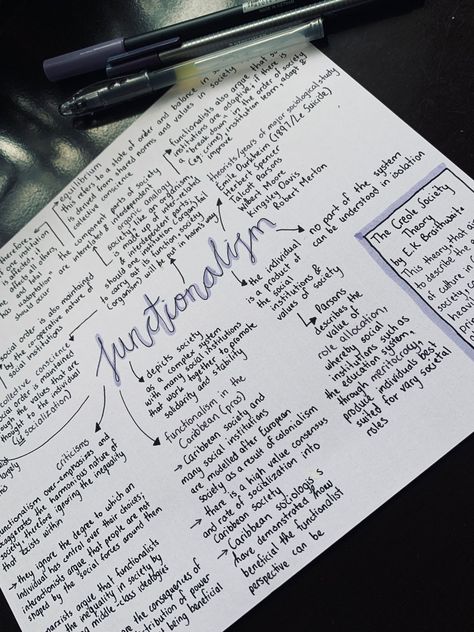 equilibrium
this refers to a state of order and balance in
derived from shared norms and values in society
collective conscience
functionalists also argue that
institutions are adaptive; if there is
a "break down" in the order of society
(eg: crime), institution learn, adapt &
improve
theorists/years of major sociological study
Emile Durkheim (1897/Le Suicide)
Herbert Spencer
Talcott Parsons
Wilbert Moore
Kingsley Davis
Robert Merton
therefore
one institution
is affected,
all others
has
and
should
occur
the component parts of society
are interrelated & interdependent
organic analogy
society is like an organism,
made up of inter-related
& independent parts,
should an organ/social institution fail
to carry out its function, society
(organism) will be put in harm's way
functionalism
no part of the system
can be understood in isolation
the individual
is a product of
the social
institutions &
values of society
Parsons
describes the
value of
role allocation,
whereby social
institutions such as
the education system,
through meritocracy,
produce individuals best
suited for vary societal
roles
The Creole Society
Theory
by E.K Braithwaite
This theory, that as
to describe the
of culture
of
society
heavi
pri
social order is also maintained
by the co-operative nature of
social institutions
collective conscience
social order is maintained
through the values that are
thought to the individual
(socialization)
depicts society
as a complex system
with many social institutions
that work together to promote
solidarity and stability
functionalism in the
Caribbean (pros)
→ Caribbean society and
many social institutions
are modelled after European
society as a result of colonialism
→ there is a high value consensus
and rate of socialization into
Caribbean society
→ Caribbean sociologists
have demonstrates how
beneficial the functionalist
perspective can be
criticisms
functionalism over-emphasizes and
exaggerates the harmonious nature of
society therefore ignoring the inequality
that exists within
→ they ignore the degree to which an
individual has control over their choices;
interactionists argue that people are not
shaped by the social forces around them
marxists argue that functionalists
the inequality in society by
middle-class ideologue
are the consequences of
distribution of power
not being beneficial